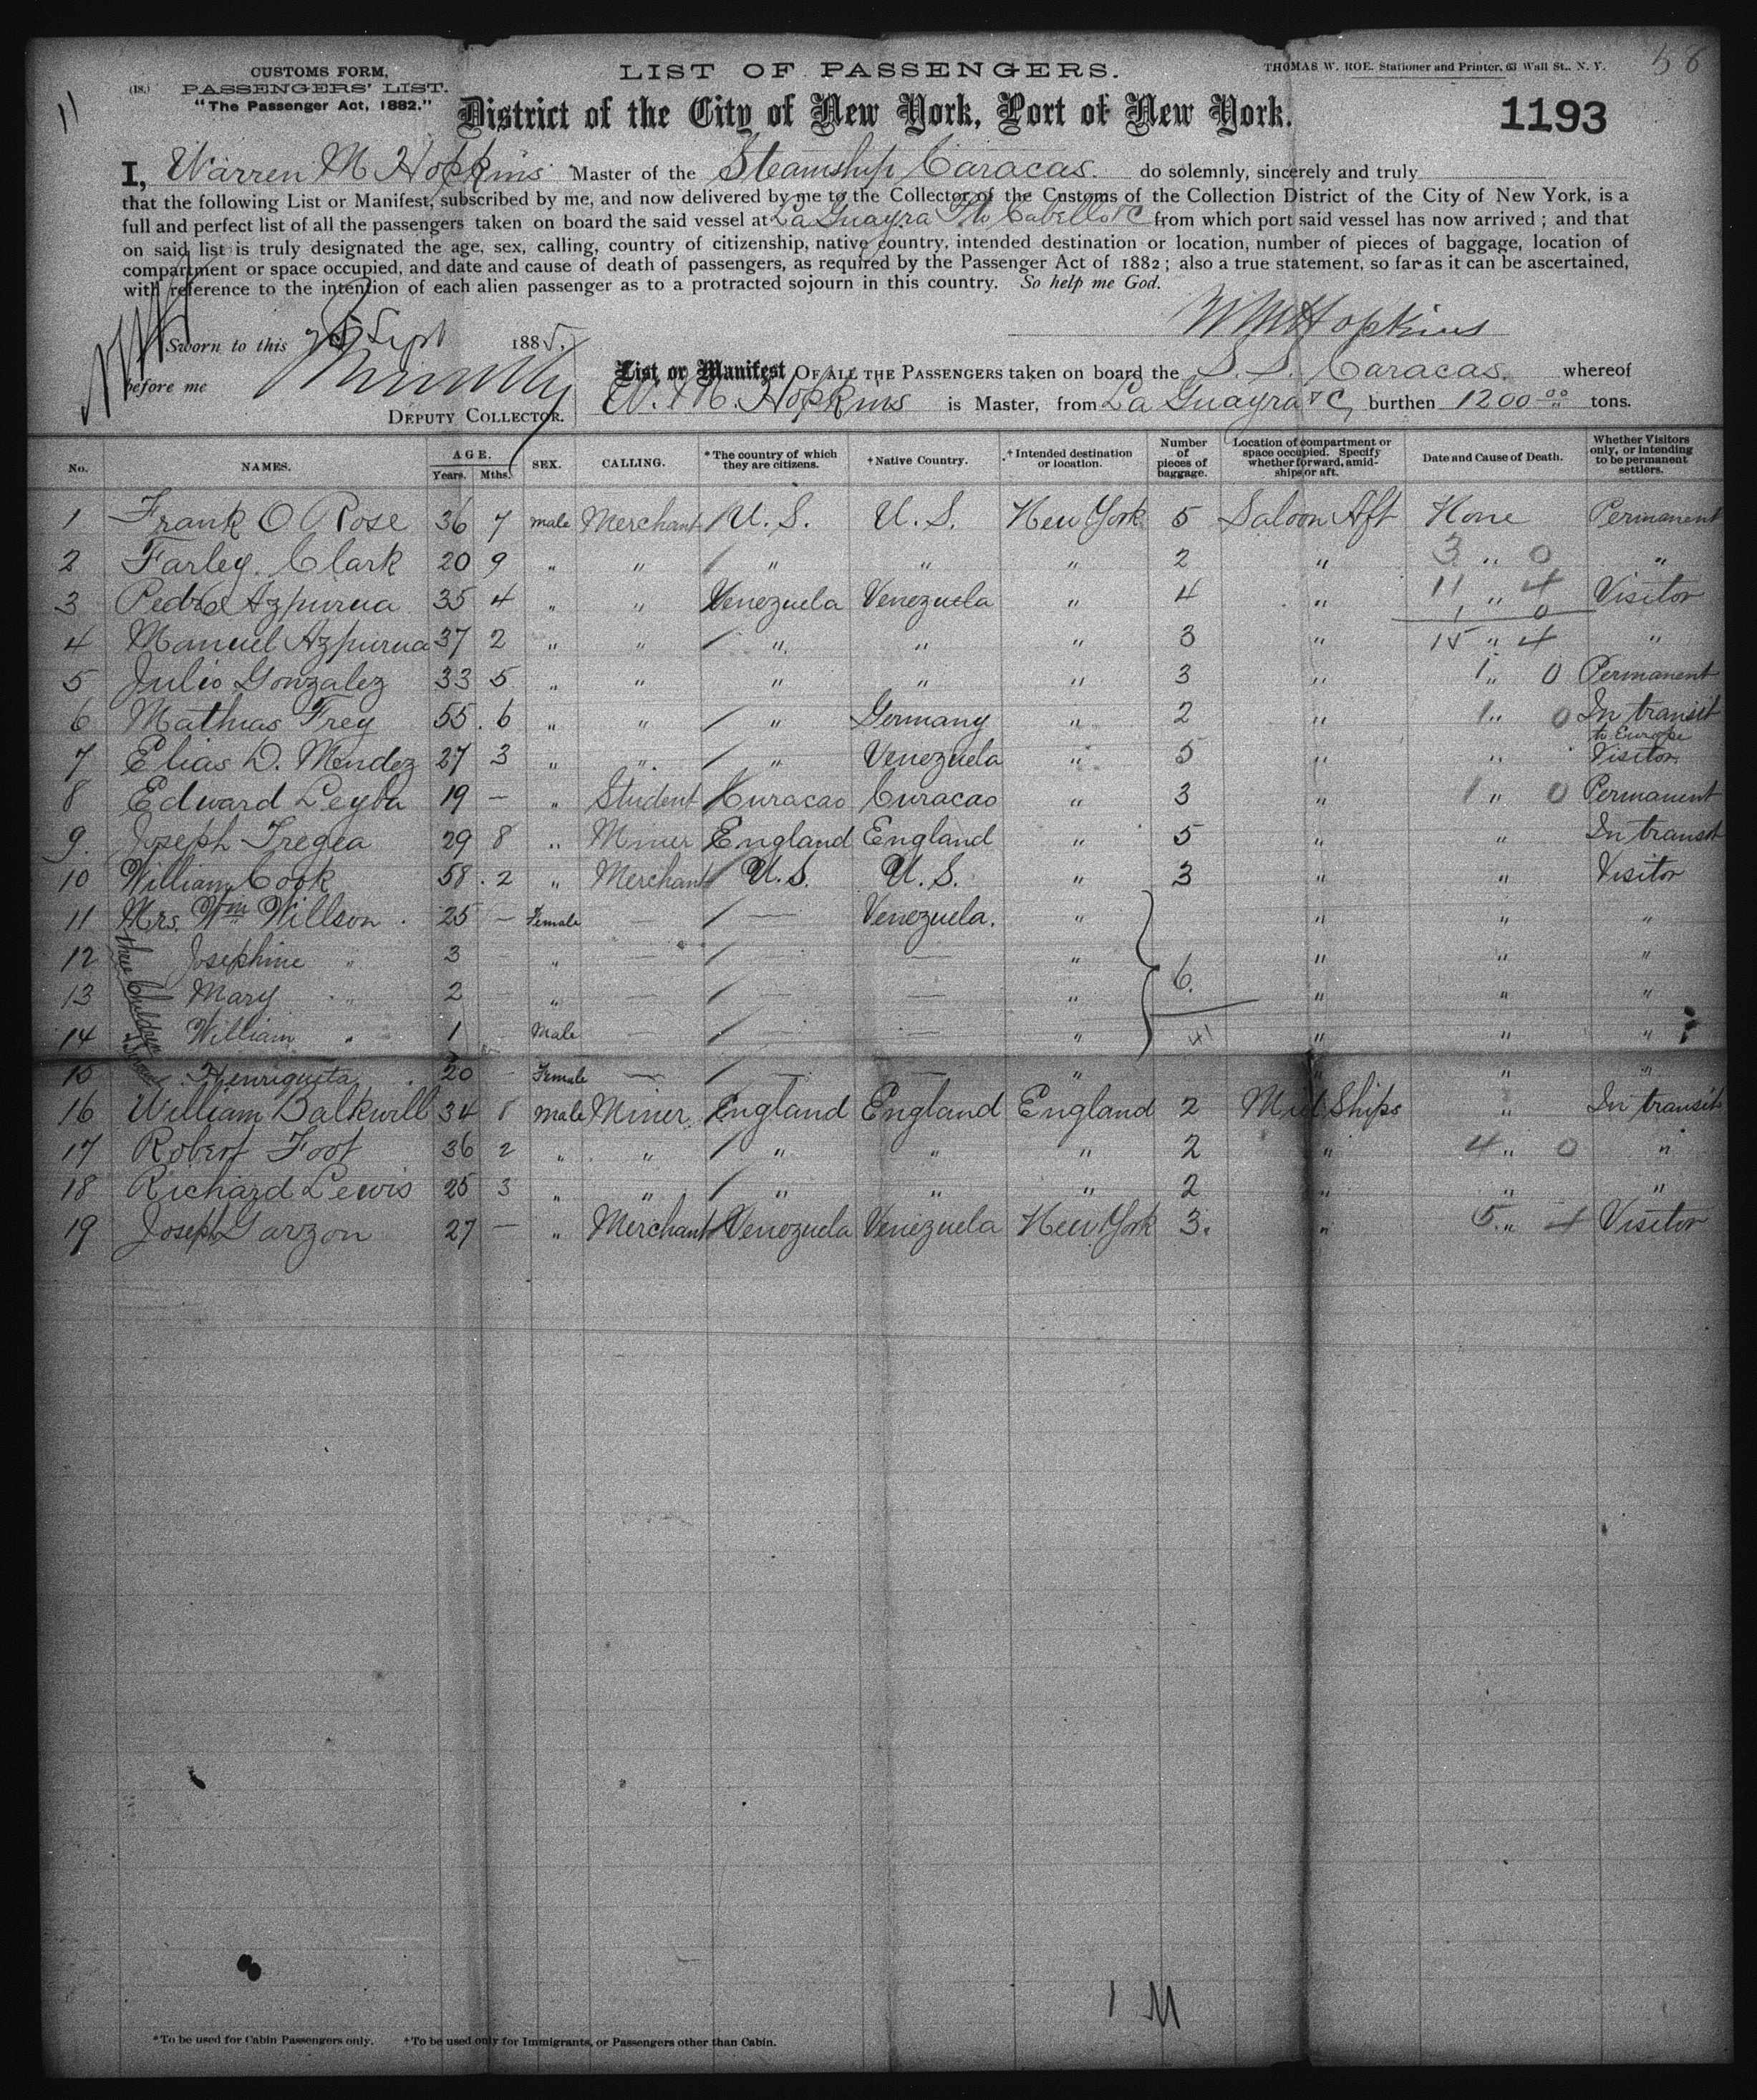 58
11
CUSTOMS FORM,
(18.) PASSENGERS' LIST.
"The Passenger Act, 1882."
LIST OF PASSENGERS.
THOMAS W. ROE. Stationer and Printer, 63 Wall St., N. Y.
District of the City of New York, Port of New York.
1193
I, Warren M Hopkins Master of the Steamship Caracas. do solemnly, sincerely and truly
that the following List or Manifest, subscribed by me, and now delivered by me to the Collector of the Customs of the Collection District of the City of New York, is a
full and perfect list of all the passengers taken on board the said vessel at La Guayra Pto Cabello &C from which port said vessel has now arrived ; and that
on said list is truly designated the age, sex, calling, country of citizenship, native country, intended destination or location, number of pieces of baggage, location of
compartment or space occupied, and date and cause of death of passengers, as required by the Passenger Act of 1882 ; also a true statement, so far as it can be ascertained,
with reference to the intention of each alien passenger as to a protracted sojourn in this country. So help me God.
WM Hopkins
Sworn to this Sept 1885,
before me
DEPUTY COLLECTOR.
List or Manifest OF ALL THE PASSENGERS taken on board the S. S. Caracas. whereof
W. M. Hopkins is Master, from La Guayra & C, burthen 1200 00 tons.
No. NAMES. AGE. Years. Mths. SEX. CALLING. *The country of which they are citizens. †Native Country. †Intended destination or location. Number of pieces of baggage. Location of compartment or space occupied. Specify whether forward, amidships or aft. Date and Cause of Death. Whether Visitors only, or intending to be permanent settlers.
1 Frank O Rose 36 7 male Merchant U. S. U. S. New York 5 Saloon Aft None Permanent
2 Farley Clark 20 9 " " " " " 2 " 3 " 0 "
3 Pedro Azpurua 35 4 " " Venezuela Venezuela " 4 " 11 " 4 Visitor
1 0
4 Manuel Azpurua 37 2 " " " " " 3 " 15 " 4 "
5 Julio Gonzalez 33 5 " " " " " 3 " 1 " 0 Permanent
6 Mathias Frey 55 6 " " " Germany " 2 " 1 " 0 In transit to Europe
7 Elias D. Mendez 27 3 " " " Venezuela " 5 " " Visitor
8 Edward Leyba 19 — " Student Curacao Curacao " 3 " 1 " 0 Permanent
9. Joseph Tregea 29 8 " Miner England England " 5 " " In transit
10 William Cook 58 2 " Merchant U. S. U. S. " 3 " " Visitor
11 Mrs. Wm Willson 25 — Female — — Venezuela. " " " "
12 Josephine " 3 — " — — — " " " "
13 Mary " 2 — " — — — " 6. " " "
14 William " 1 Male — — — " 41 " " "
three Children
15 Henriqueta 20 — Female — — — " " " "
16 William Balkwill 34 8 male Miner England England England 2 Mid Ships " In transit
17 Robert Foot 36 2 " " " " " 2 " 4 " 0 "
18 Richard Lewis 25 3 " " " " " 2 " " "
19 Joseph Garzon 27 — " Merchant Venezuela Venezuela New York 3. " 5 " 4 Visitor
1 M
*To be used for Cabin Passengers only. †To be used only for Immigrants, or Passengers other than Cabin.